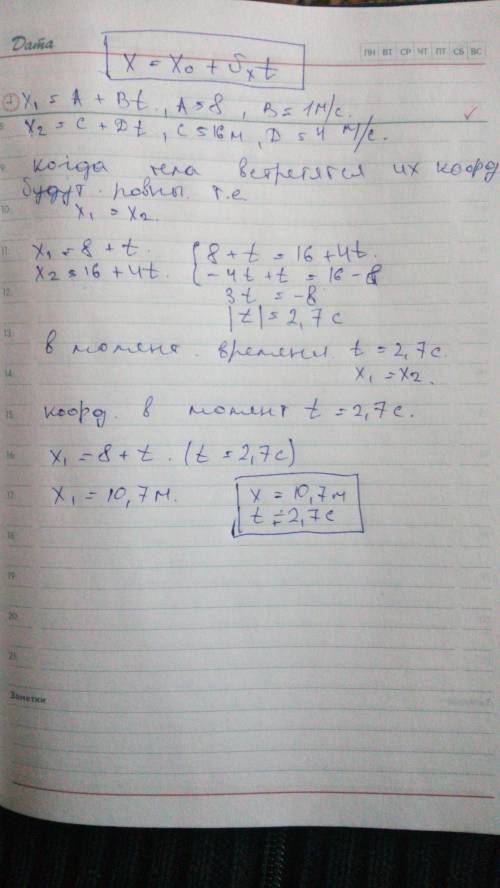 Дата
ПН ВТ СР ЧТ ПТ СБ ВС
X = X₀ + υₓt
X₁ = A + Bt, A = 8, B = 1 м/с.
X₂ = C + Dt, C = 16 м, D = 4 м/с.
когда тела встретятся их коорд
будут равны т.е
X₁ = X₂.
X₁ = 8 + t.
X₂ = 16 + 4t.
8 + t = 16 + 4t.
-4t + t = 16 - 8
3t = -8
|t| = 2,7 с
в момент времени t = 2,7 с.
X₁ = X₂.
коорд. в момент t = 2,7 с.
X₁ = 8 + t. (t = 2,7 с)
X₁ = 10,7 м.
X = 10,7 м
t = 2,7 с
9.
10.
11.
12.
13.
14.
15.
16.
17.
18.
19.
20.
21.
Заметки